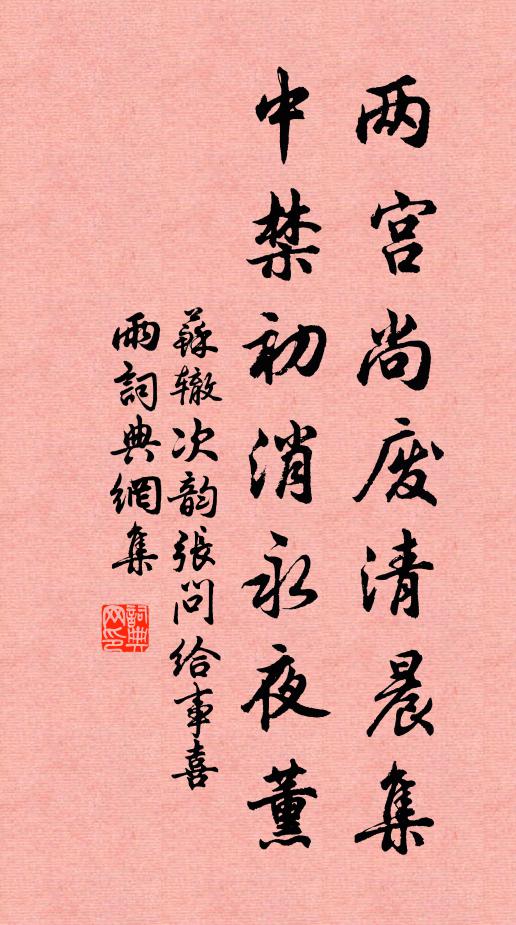 两宫尚废清晨集
中禁初消永夜薰
蘇辙次韵張问给事喜
雨詞典網集
詞典网印